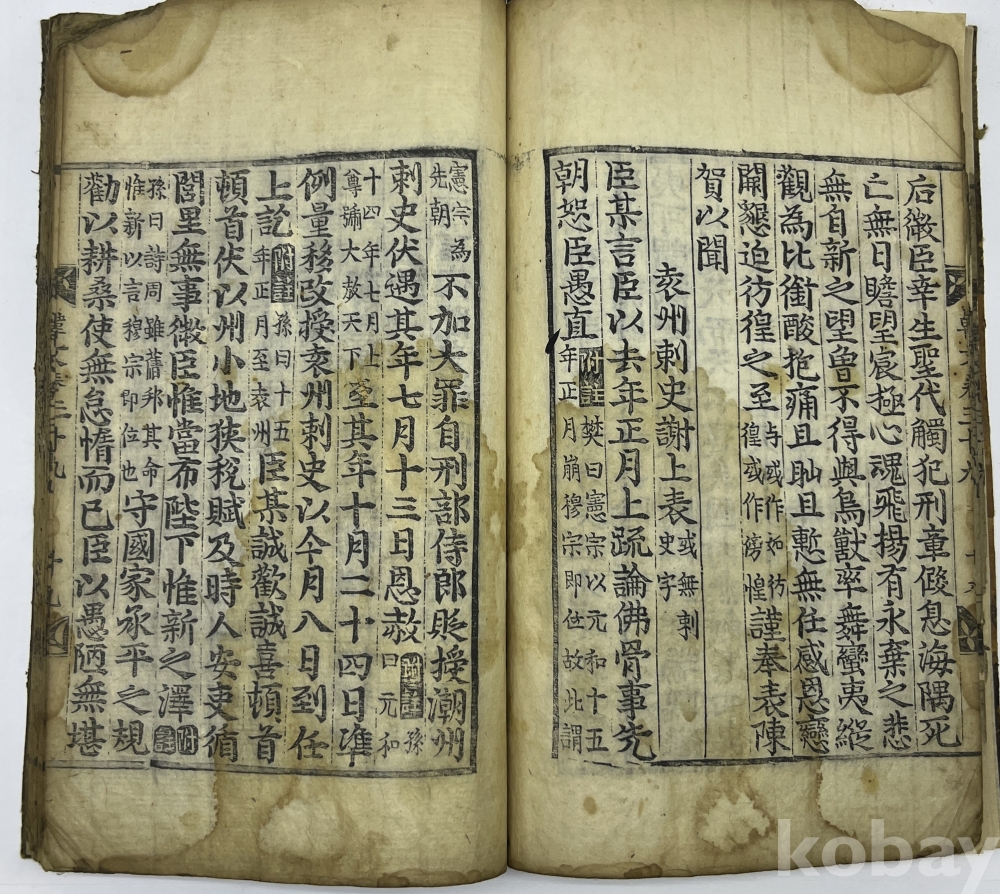 后微臣幸生聖代觸犯刑章假息海隅死
亡無日瞻望宸極心魂飛揚有永棄之悲
無自新之望曾不得與鳥獸率舞蠻夷縱
觀為比銜酸抱痛且耻且慙無任感恩戀
闕懇迫彷徨之至与或作如彷徨或作傍惶謹奉表陳
賀以聞
袁州刺史謝上表或無刺史字
臣某言臣以去年正月上疏論佛骨事先
朝恕臣愚直附註樊曰憲宗以元和十五年正月崩穆宗即位故此謂
憲宗為先朝不加大罪自刑部侍郎貶授潮州
刺史伏遇其年七月十三日恩赦附註孫曰元和
十四年七月上尊號大赦天下至其年十月二十四日准
例量移改授袁州刺史以今月八日到任
上訖附註孫曰十五年正月至袁州臣某誠歡誠喜頓首
頓首伏以州小地狹稅賦及時人安吏循
閭里無事微臣惟當布陛下惟新之澤附註
孫曰詩周雖舊邦其命惟新以言穆宗即位也守國家承平之規
勸以耕桑使無怠惰而已臣以愚陋無堪
韓文卷之三十九
kobay